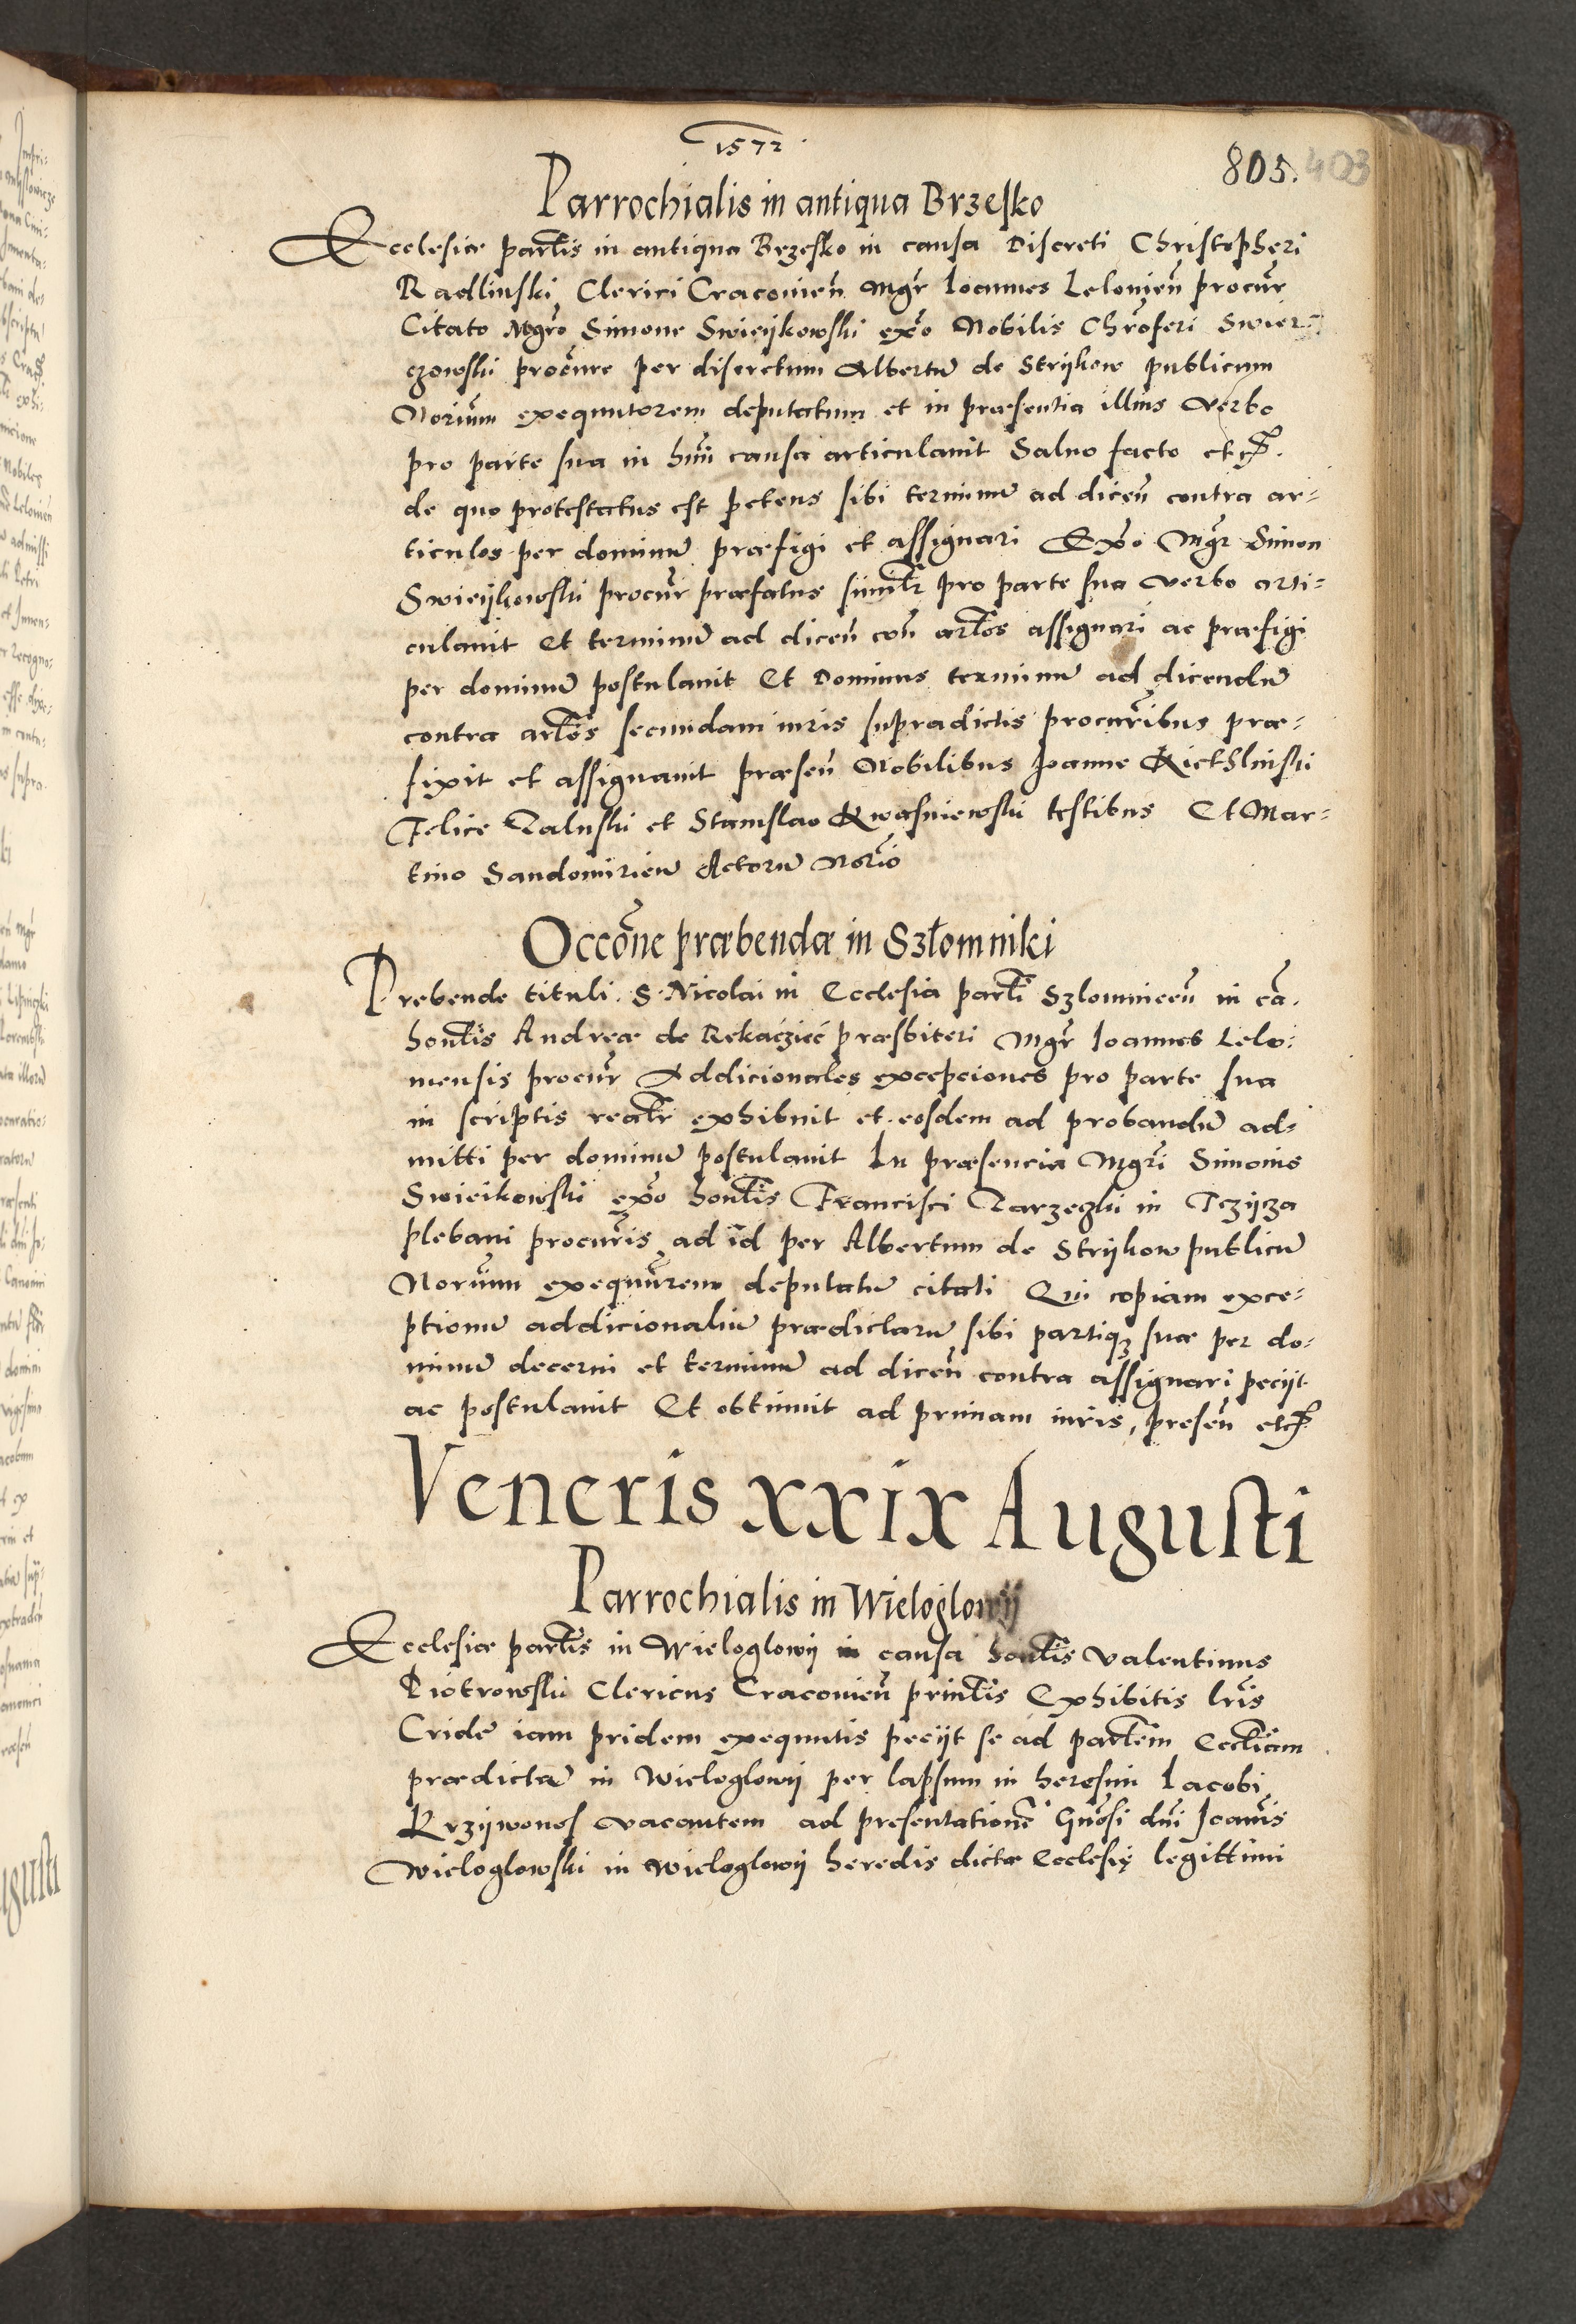 1572
805. 403
Parrochialis in antiqua Brzesko
Ecclesiæ parłis in antiqua Brzesko in causa Discreti Christopheri
Radlinski Clerici Cracovieñ Mgr̃ Ioannes Leloviẽn procur̃
Citato Mgr̃o Simone Swieijkowski ex̃o Nobilis Chr̃oferi Swier-
czowski procũre per discretum Albertũ de Strijkow publicum
Noriũm exequutorem deputatum et in præsentia illius verbo
pro parte sua in hm̃õi causa articulavit Salvo facto etcꝭ.
de quo protestatus est petens sibi terminũ ad diceñ contra ar-
ticulos per dominũ præfigi et assignari Ex̃o Mgr̃ Simon
Swieijkowski procur̃ præfatus simil̃r pro parte sua verbo arti-
culavit Et terminũ ad diceñ coñ artłos assignari ac præfigi
per dominũ postulavit Et Dominus terminũ ad dicendũ
contra artłos secundam iuris supradictis procur̃ibus præ-
fixit et assignavit præseñ Nobilibus Joanne Kiethlinski
Felice Zaluski et Stanislao Kwasniewski testibus Et Mar-
tino Sandomirieñ Actorũ Nor̃io
Occõne præbendæ in Szłomniki
Prebende tituli. S. Nicolai in Ecclesia parłi Szlomniceñ in cã.
honłis Andreæ de Rekaczieć præsbiteri Mgr̃ Ioannes Lelo-
viensis procur̃ Addicionales excepciones pro parte sua
in scriptis reałr exhibuit et eosdem ad probandũ ad-
mitti per dominũ postulavit In præsencia Mgr̃i Simonis
Swieikowski ex̃o honłis Francisci Zarzeczki in Tczijcza
plebani procur̃is ad id per Albertum de Strijkow publicũ
Noriũm exequũrem deputatũ citati Qui copiam exce-
ptionũ addicionaliũ prædictarũ sibi partiqꝫ suæ per do-
minũ decerni et terminũ ad diceñ contra assignari peciit
ac postulavit Et obtinuit ad primam iuris, preseñ etcꝭ
Veneris xxix Augusti
Parrochialis in Wieloglowij
Ecclesiæ parłis in Wieloglowij in causa honłis Valentinus
Piotrowski Clericus Cracovieñ prinłis Exhibitis lr̃is
Cridẽ iam pridem exequutis peciit se ad parłem Eccłiam
prædictã in Wieloglowij per lapsum in heresim Iacobi
Krzijwonos vacantem ad presentationẽ Gnõsi dñi Joañis
Wieloglowski in Wieloglowij heredis dictæ Ecclesię legittimi